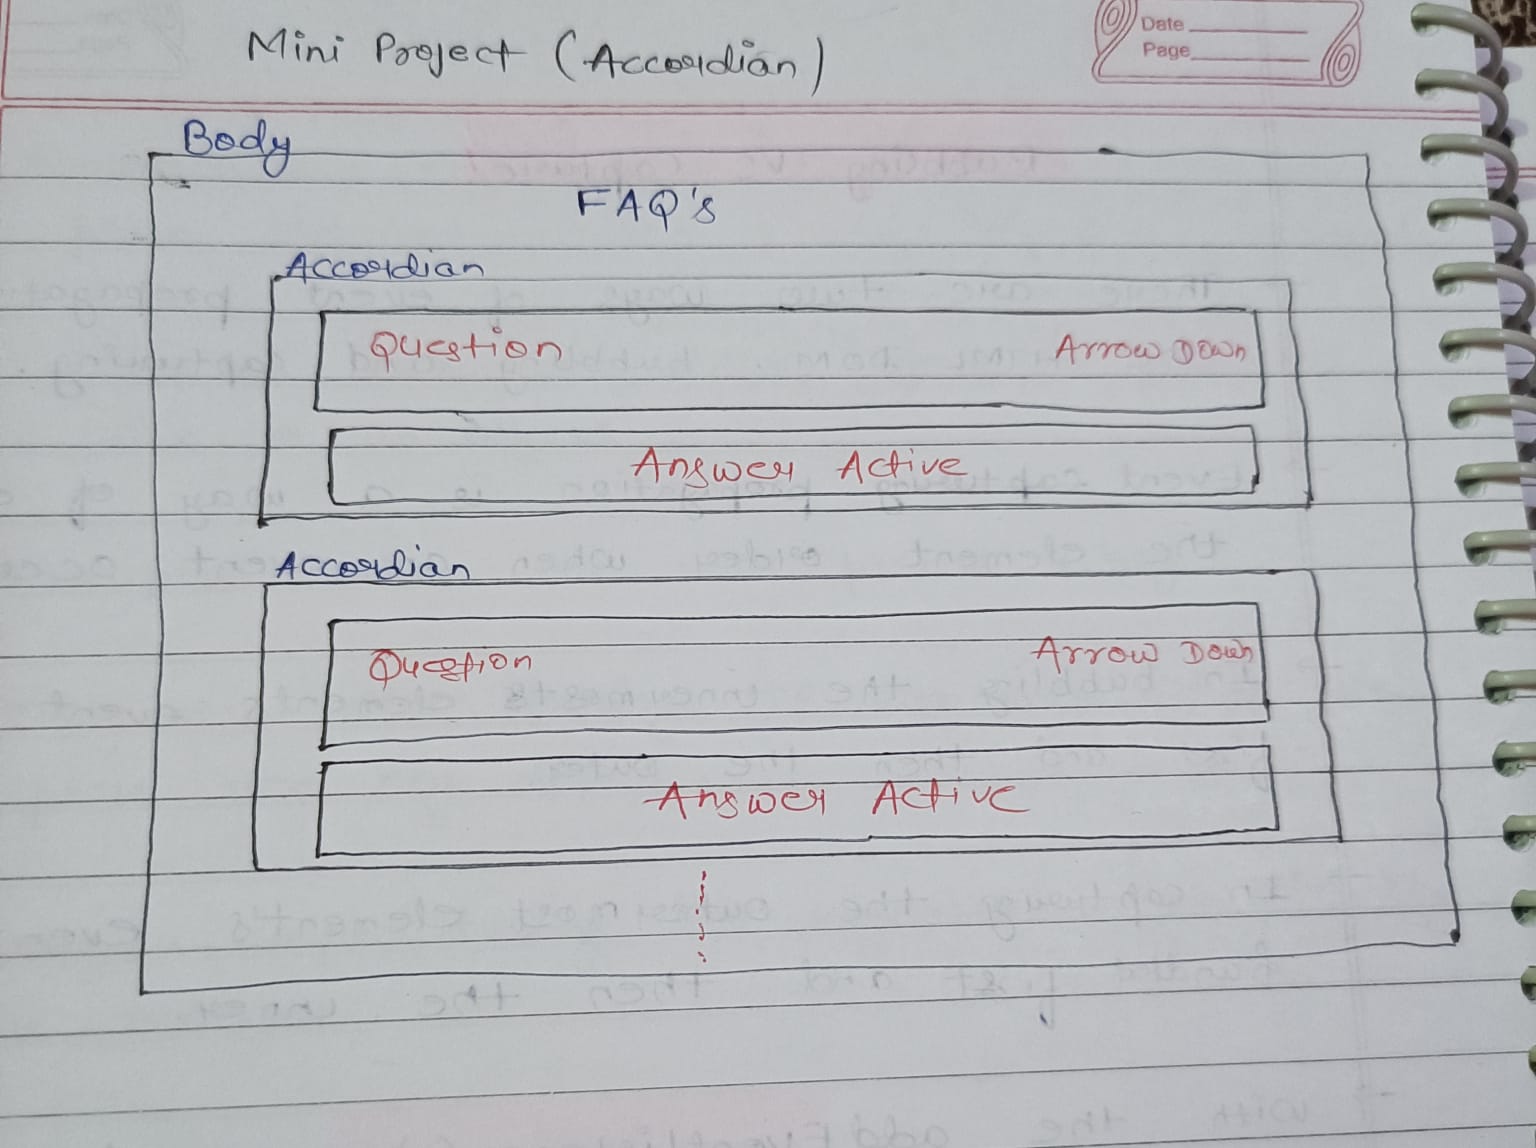 Mini Project (Accordian)
Date
Page
Body
FAQ's
Accordian
Question Arrow Down
Answer Active
Accordian
Question Arrow Down
Answer Active